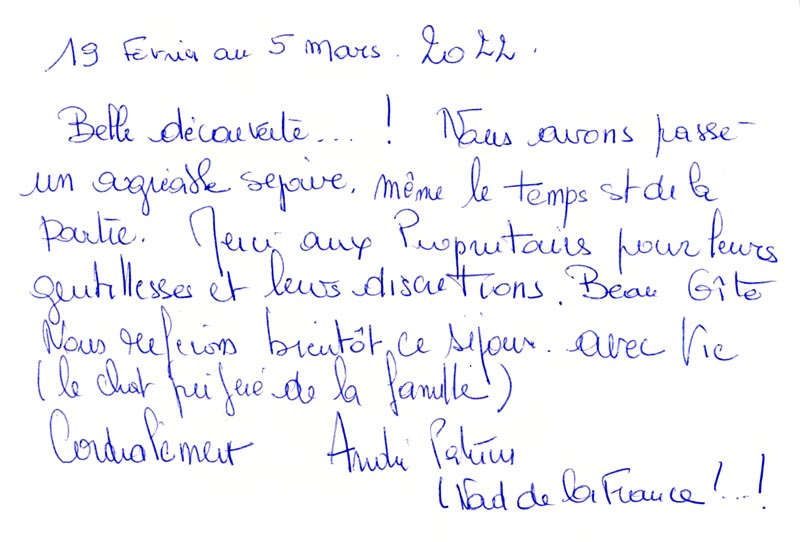 19 Fevrier au 5 mars. 2022.
Belle découverte... ! Nous avons passé
un agréable sejour, même le temps st de la
partie. Merci aux Propriétaires pour leurs
gentillesses et leurs discretions. Beau Gîte
Nous referons bientôt ce séjour. avec Vic
(le chat préféré de la famille)
Cordialement André
(Nord de la France !...!